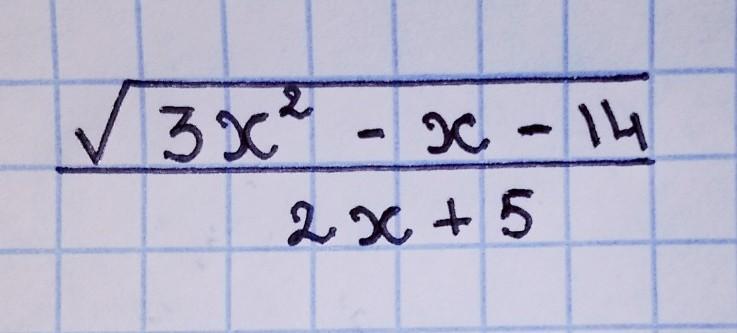 √3x² - x - 14
2x + 5